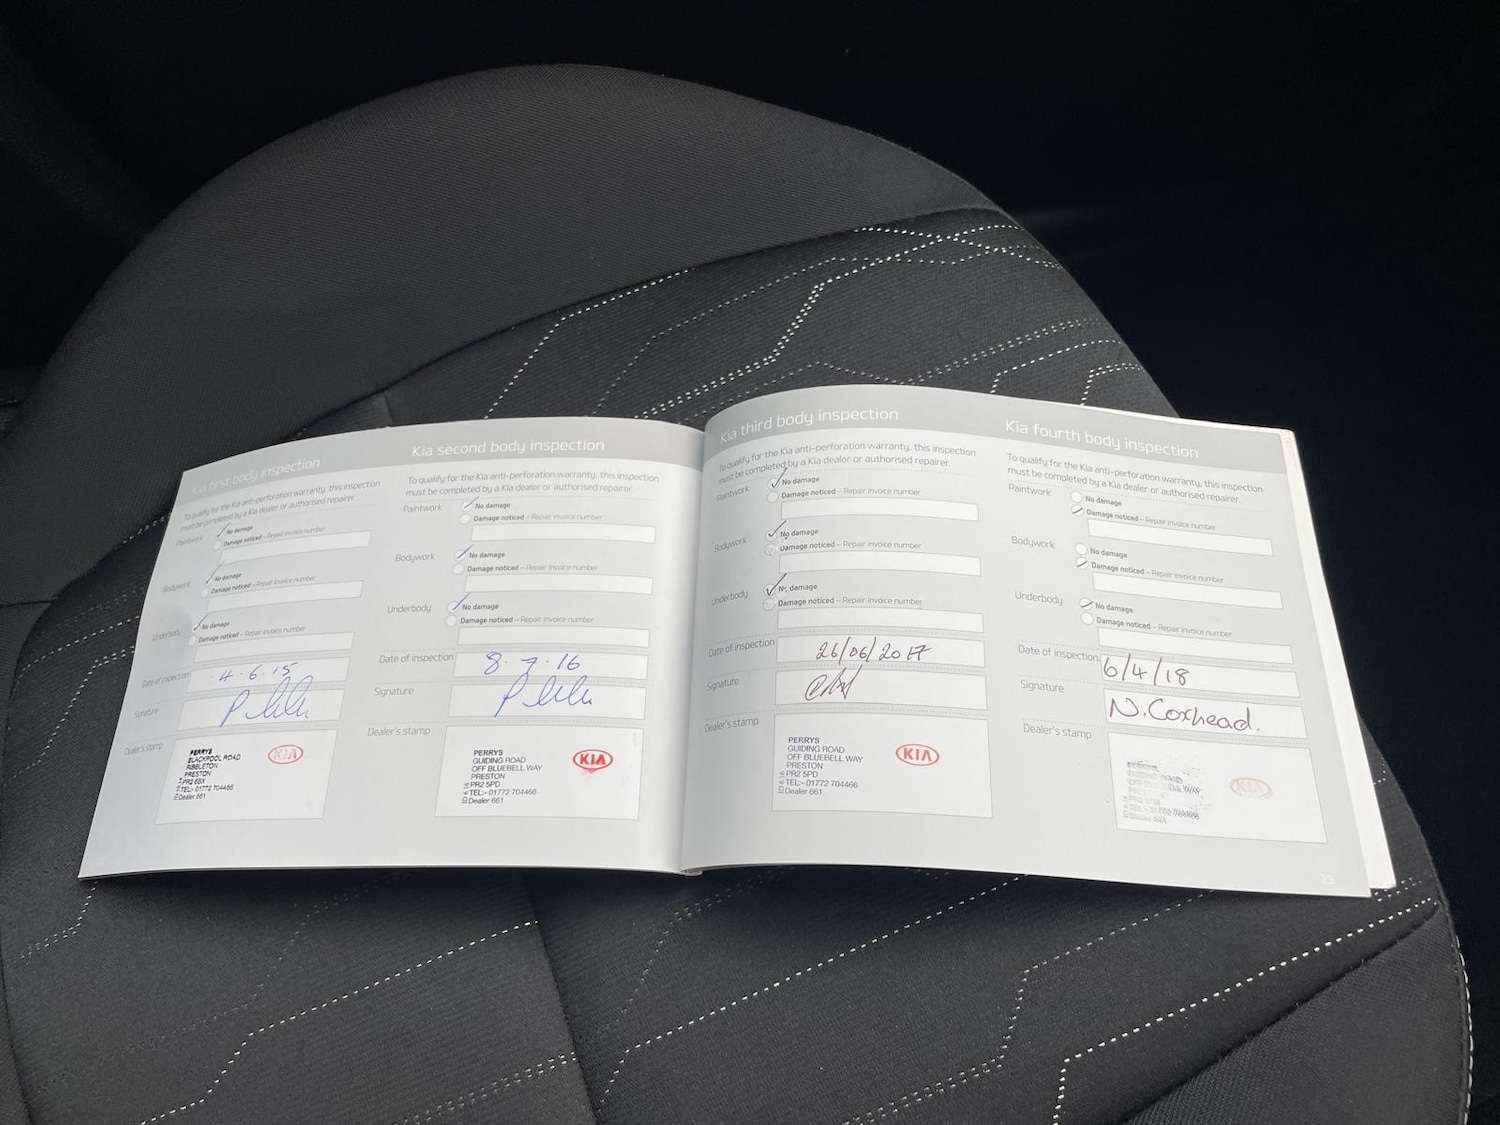 Kia first body inspection
To qualify for the Kia anti-perforation warranty, this inspection
must be completed by a Kia dealer or authorised repairer.
Paintwork
No damage
Damage noticed – Repair invoice number
Bodywork
No damage
Damage noticed – Repair invoice number
Underbody
No damage
Damage noticed – Repair invoice number
Date of inspection 4.6.15
Signature
Dealer's stamp
PERRYS
BLACKPOOL ROAD
RIBBLETON
PRESTON
PR2 6BX
TEL:- 01772 704466
Dealer 661
KIA
Kia second body inspection
To qualify for the Kia anti-perforation warranty, this inspection
must be completed by a Kia dealer or authorised repairer.
Paintwork
No damage
Damage noticed – Repair invoice number
Bodywork
No damage
Damage noticed – Repair invoice number
Underbody
No damage
Damage noticed – Repair invoice number
Date of inspection 8.7.16
Signature
Dealer's stamp
PERRYS
GUIDING ROAD
OFF BLUEBELL WAY
PRESTON
PR2 5PD
TEL:- 01772 704466
Dealer 661
KIA
Kia third body inspection
To qualify for the Kia anti-perforation warranty, this inspection
must be completed by a Kia dealer or authorised repairer.
Paintwork
No damage
Damage noticed – Repair invoice number
Bodywork
No damage
Damage noticed – Repair invoice number
Underbody
No damage
Damage noticed – Repair invoice number
Date of inspection 26/06/2017
Signature
Dealer's stamp
PERRYS
GUIDING ROAD
OFF BLUEBELL WAY
PRESTON
PR2 5PD
TEL:- 01772 704466
Dealer 661
KIA
Kia fourth body inspection
To qualify for the Kia anti-perforation warranty, this inspection
must be completed by a Kia dealer or authorised repairer.
Paintwork
No damage
Damage noticed – Repair invoice number
Bodywork
No damage
Damage noticed – Repair invoice number
Underbody
No damage
Damage noticed – Repair invoice number
Date of inspection 6/4/18
Signature N. Coxhead.
Dealer's stamp
KIA
23